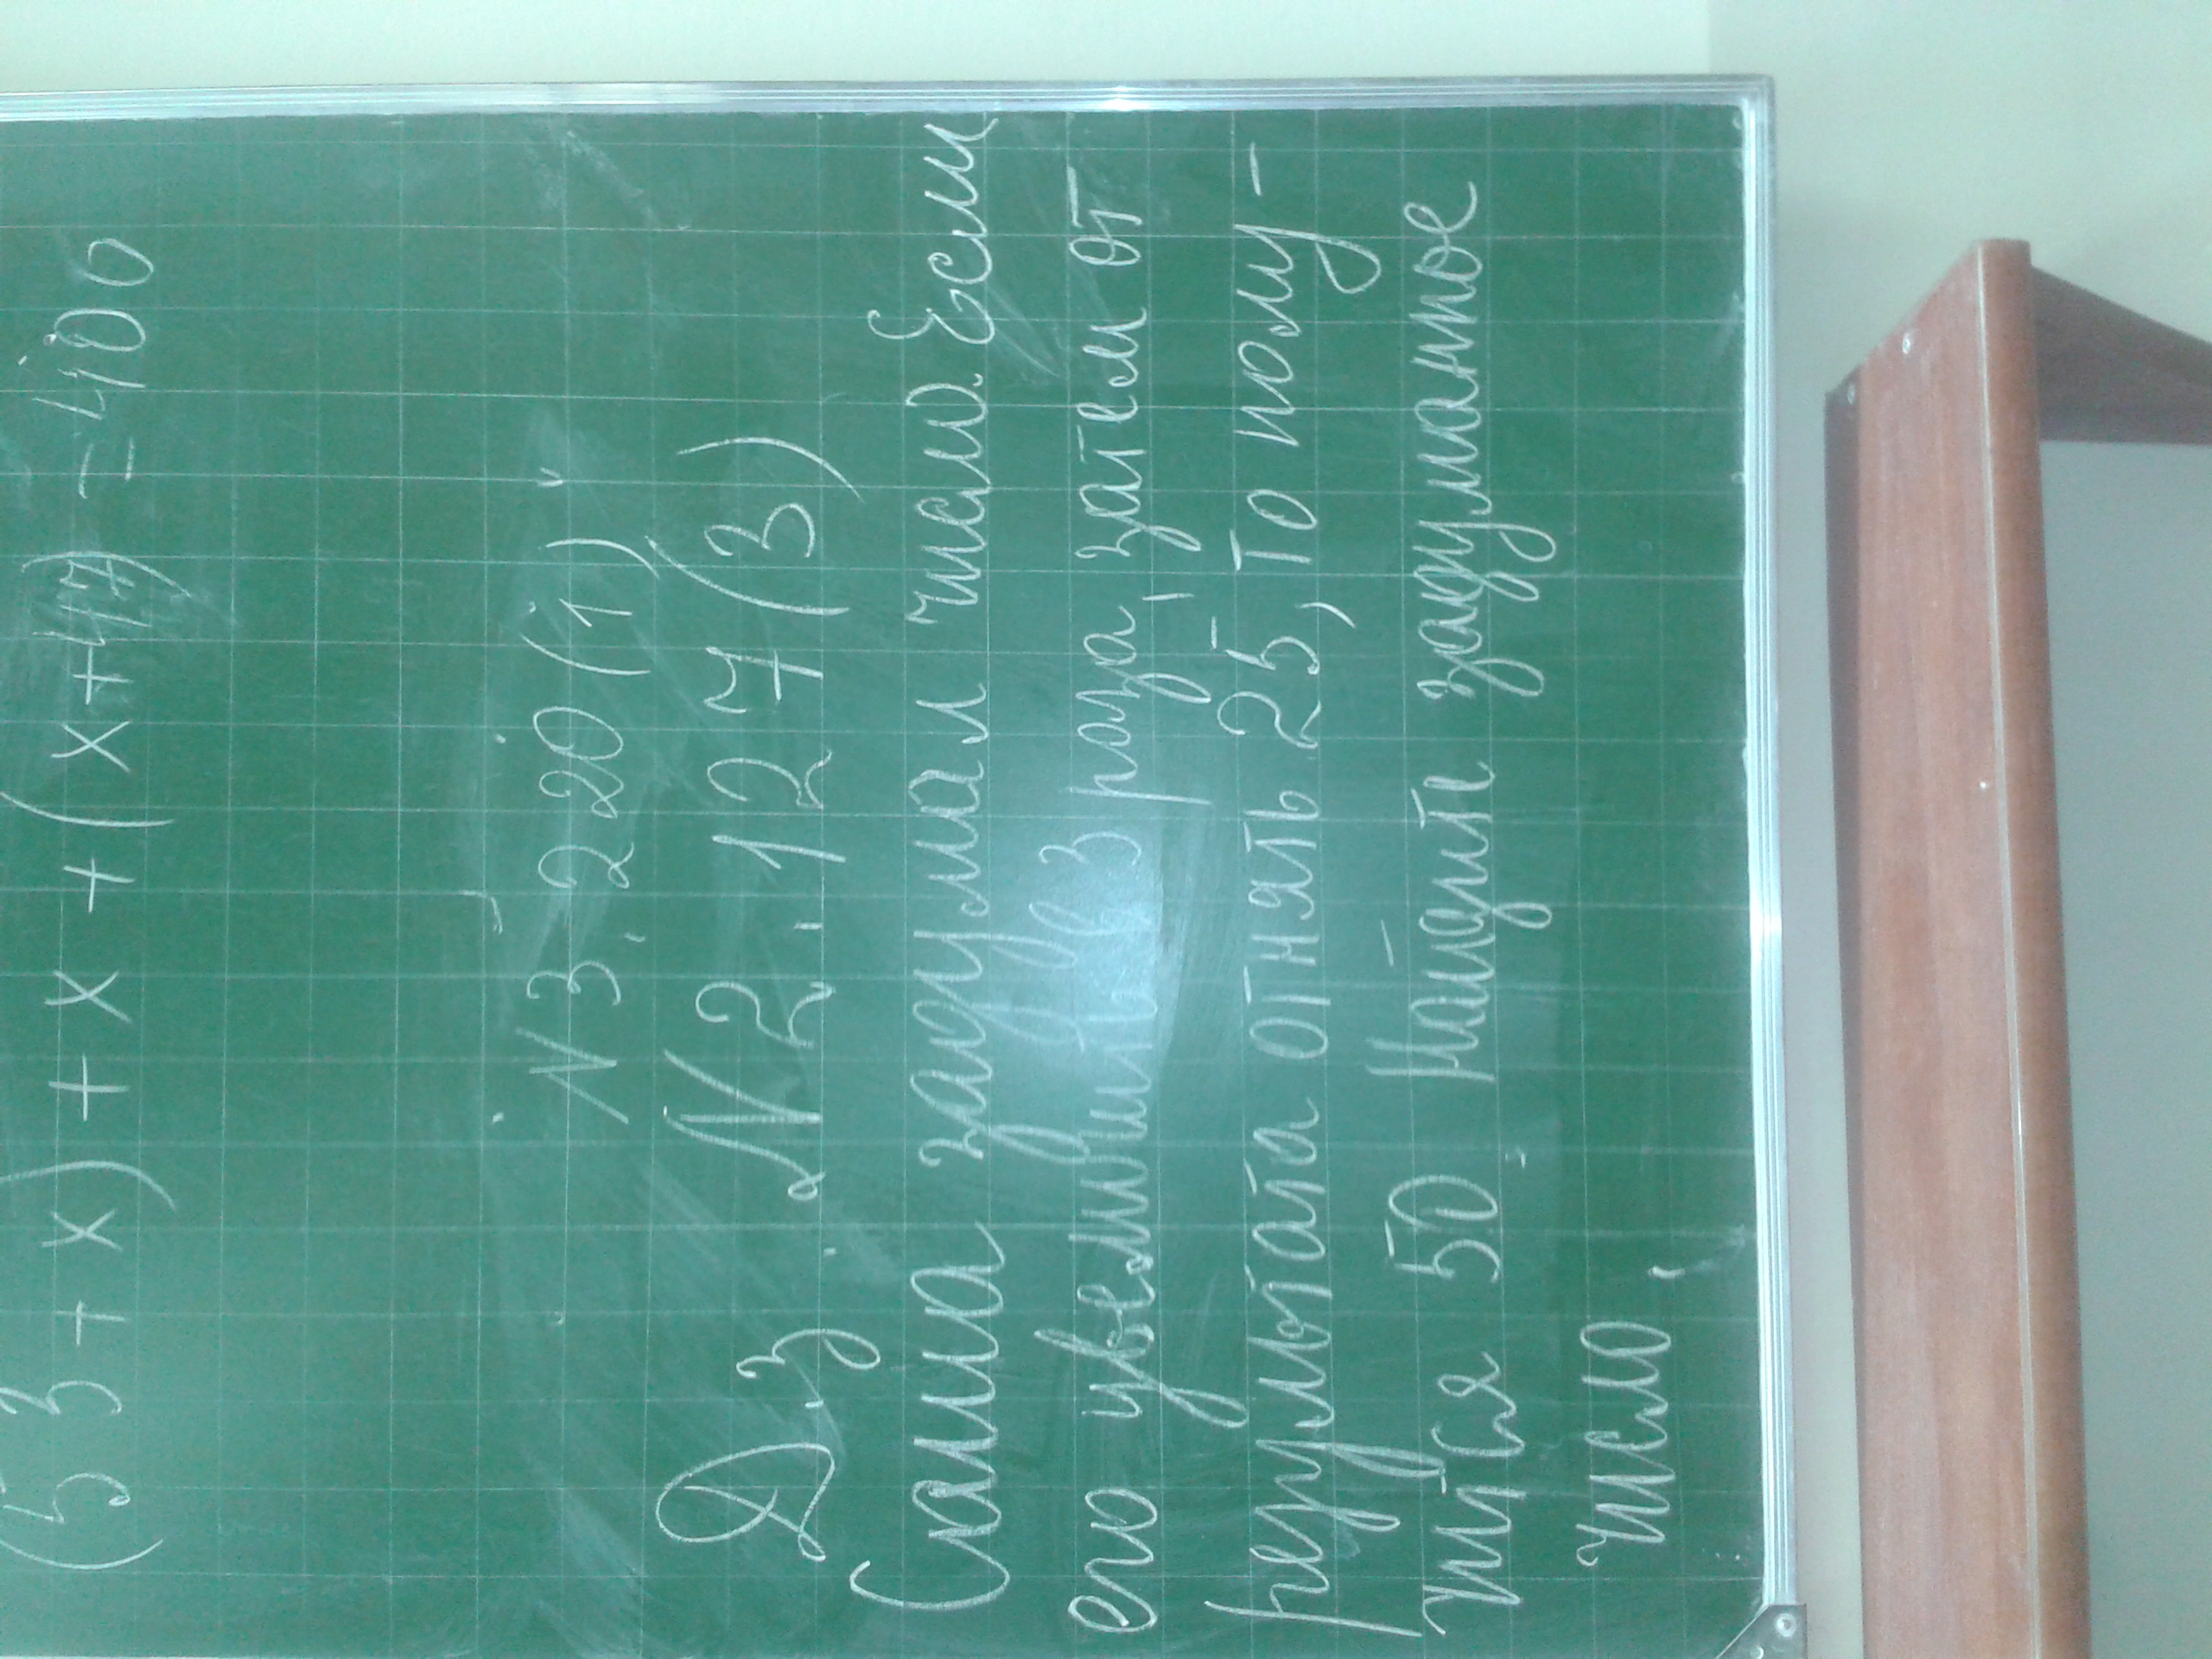 (53 + x) + x + (x + 47) = 400
N 3. 220 (1)
Д.З. N 2. 127 (3)
Саша задумал число. Если
его увеличить в 3 раза, затем от
результата отнять 25, то полу-
чится 50. Найдите задуманное
число.